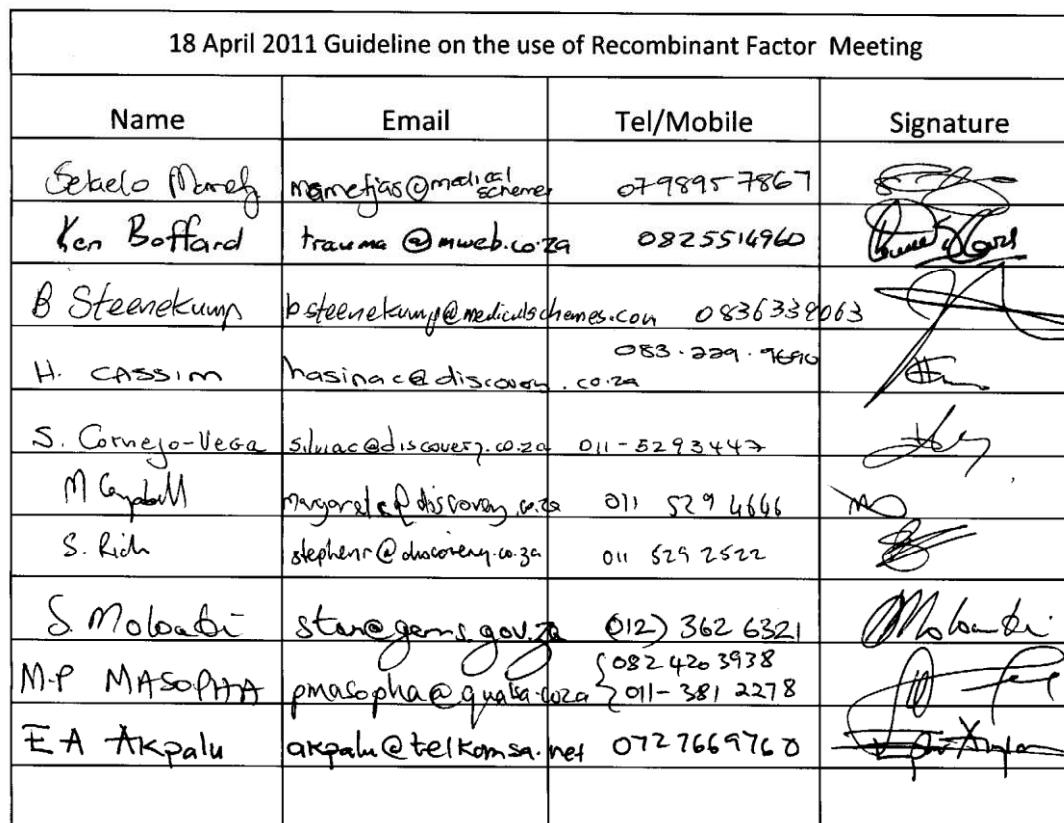 18 April 2011 Guideline on the use of Recombinant Factor Meeting
Name Email Tel/Mobile Signature
0798957867
Ken Boffard trauma @mweb.co.za 0825514960
B Steenekump bsteenekump@medicalschemes.com 0836339063
H. CASSIM hasinac@discovery.co.za 083.229.9690
S. Cornejo-Vega silviac@discovery.co.za 011-5293447
M Campbell margaretc@discovery.co.za 011 529 4646
S. Rich stephenr@discovery.co.za 011 529 2522
S. Moloabi stan@gems.gov.za (012) 362 6321 Moloabi
M.P MASOPHA pmasopha@qualsa.co.za 082 4203938
011-381 2278
E A Akpalu akpalu@telkomsa.net 0727669760